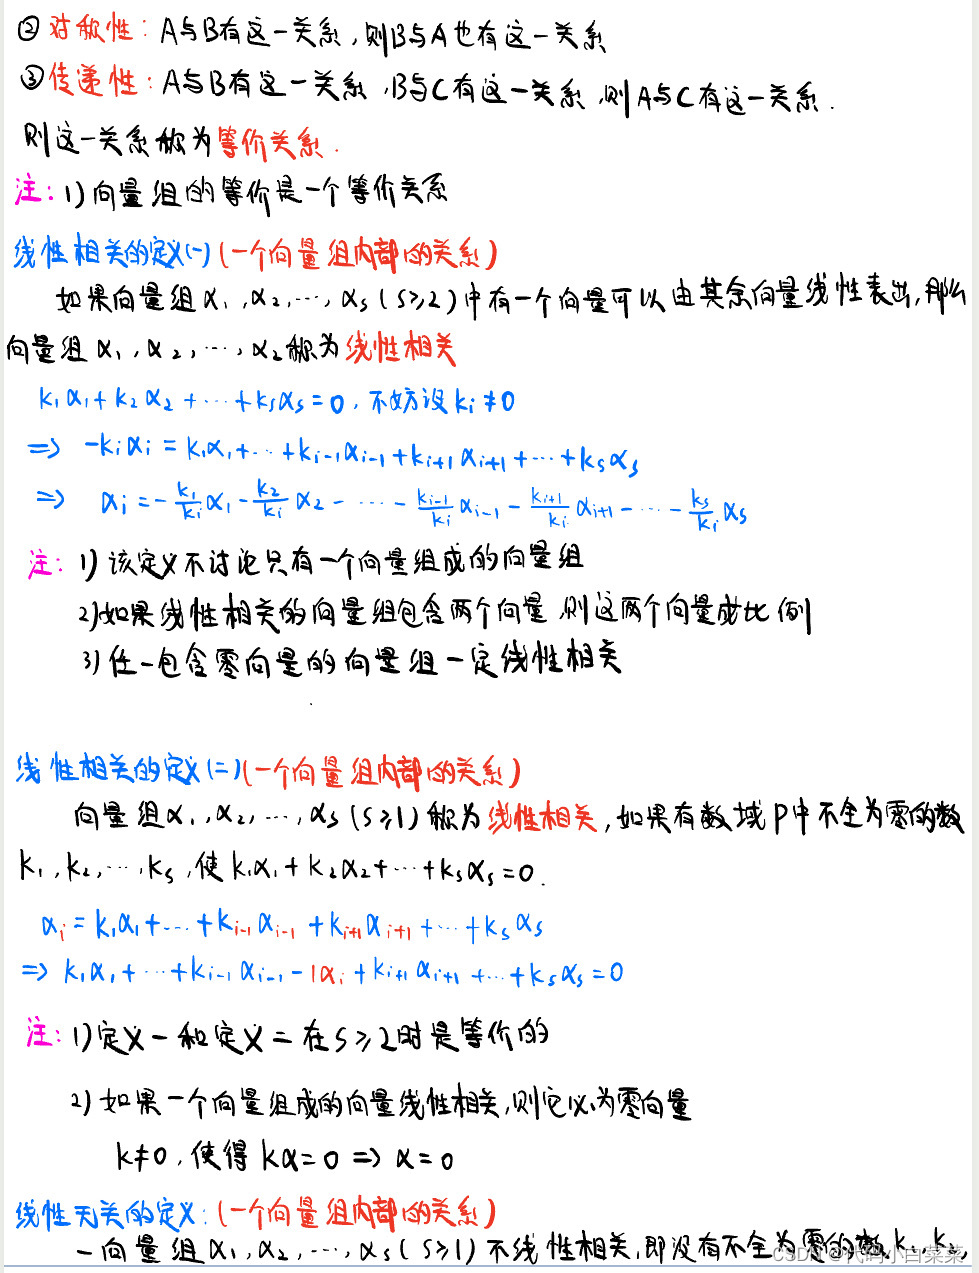 ②对称性: A与B有这一关系,则B与A也有这一关系
③传递性: A与B有这一关系,B与C有这一关系,则A与C有这一关系.
则这一关系称为等价关系.
注: 1)向量组的等价是一个等价关系
线性相关的定义(一)(一个向量组内部的关系)
如果向量组α₁,α₂,…,αs(s≥2)中有一个向量可以由其余向量线性表出,那么
向量组α₁,α₂,…,α₂称为线性相关
k₁α₁+k₂α₂+…+ksαs=0,不妨设ki≠0
=> -kiαi=k₁α₁+…+ki-1αi-1+ki+1αi+1+…+ksαs
=> αi=-k₁/kiα₁-k₂/kiα₂-…-ki-1/kiαi-1-ki+1/kiαi+1-…-ks/kiαs
注: 1)该定义不讨论只有一个向量组成的向量组
2)如果线性相关的向量组包含两个向量,则这两个向量成比例
3)任一包含零向量的向量组一定线性相关
线性相关的定义(二)(一个向量组内部的关系)
向量组α₁,α₂,…,αs(s≥1)称为线性相关,如果有数域P中不全为零的数
k₁,k₂,…,ks,使k₁α₁+k₂α₂+…+ksαs=0.
αi=k₁α₁+…+ki-1αi-1+ki+1αi+1+…+ksαs
=> k₁α₁+…+ki-1αi-1-1αi+ki+1αi+1+…+ksαs=0
注: 1)定义一和定义二在s≥2时是等价的
2)如果一个向量组成的向量线性相关,则它必为零向量
k≠0,使得kα=0=>α=0
线性无关的定义:(一个向量组内部的关系)
一向量组α₁,α₂,…,αs(s≥1)不线性相关,即没有不全为零的数k₁,k₂,
CSDN @代码小白菜菜